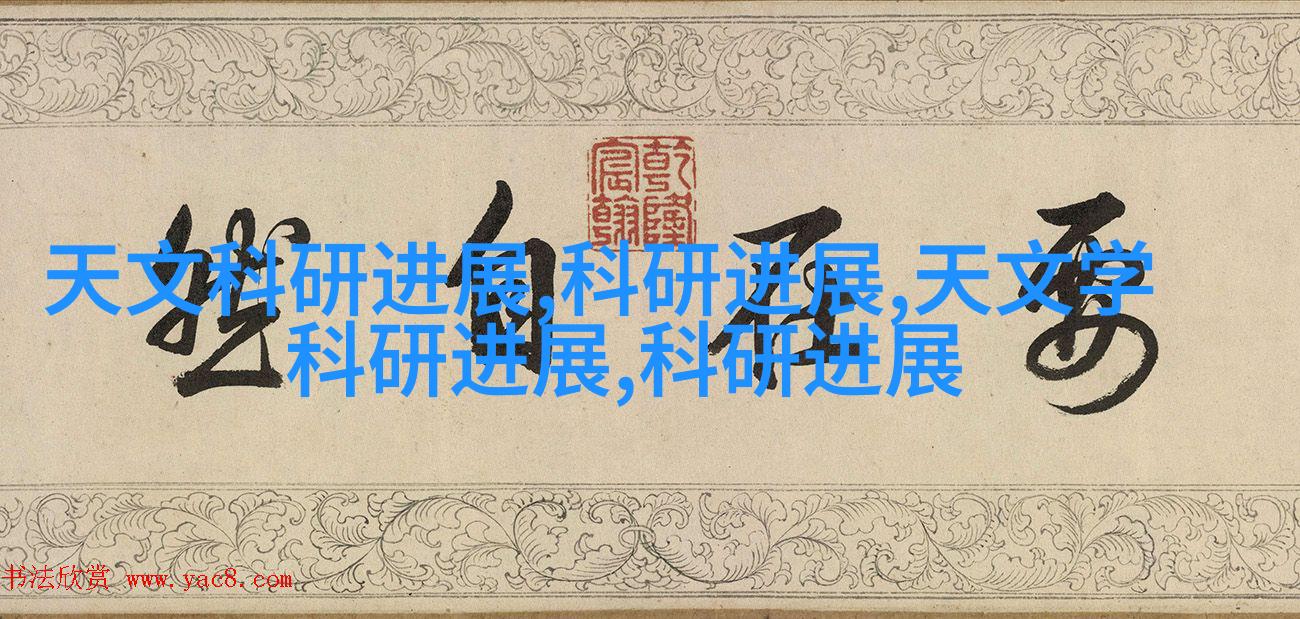 乾隆宸翰
要自
天文科研进展,科研进展,天文学
科研进展,科研进展
书法欣赏 www.yac8.com